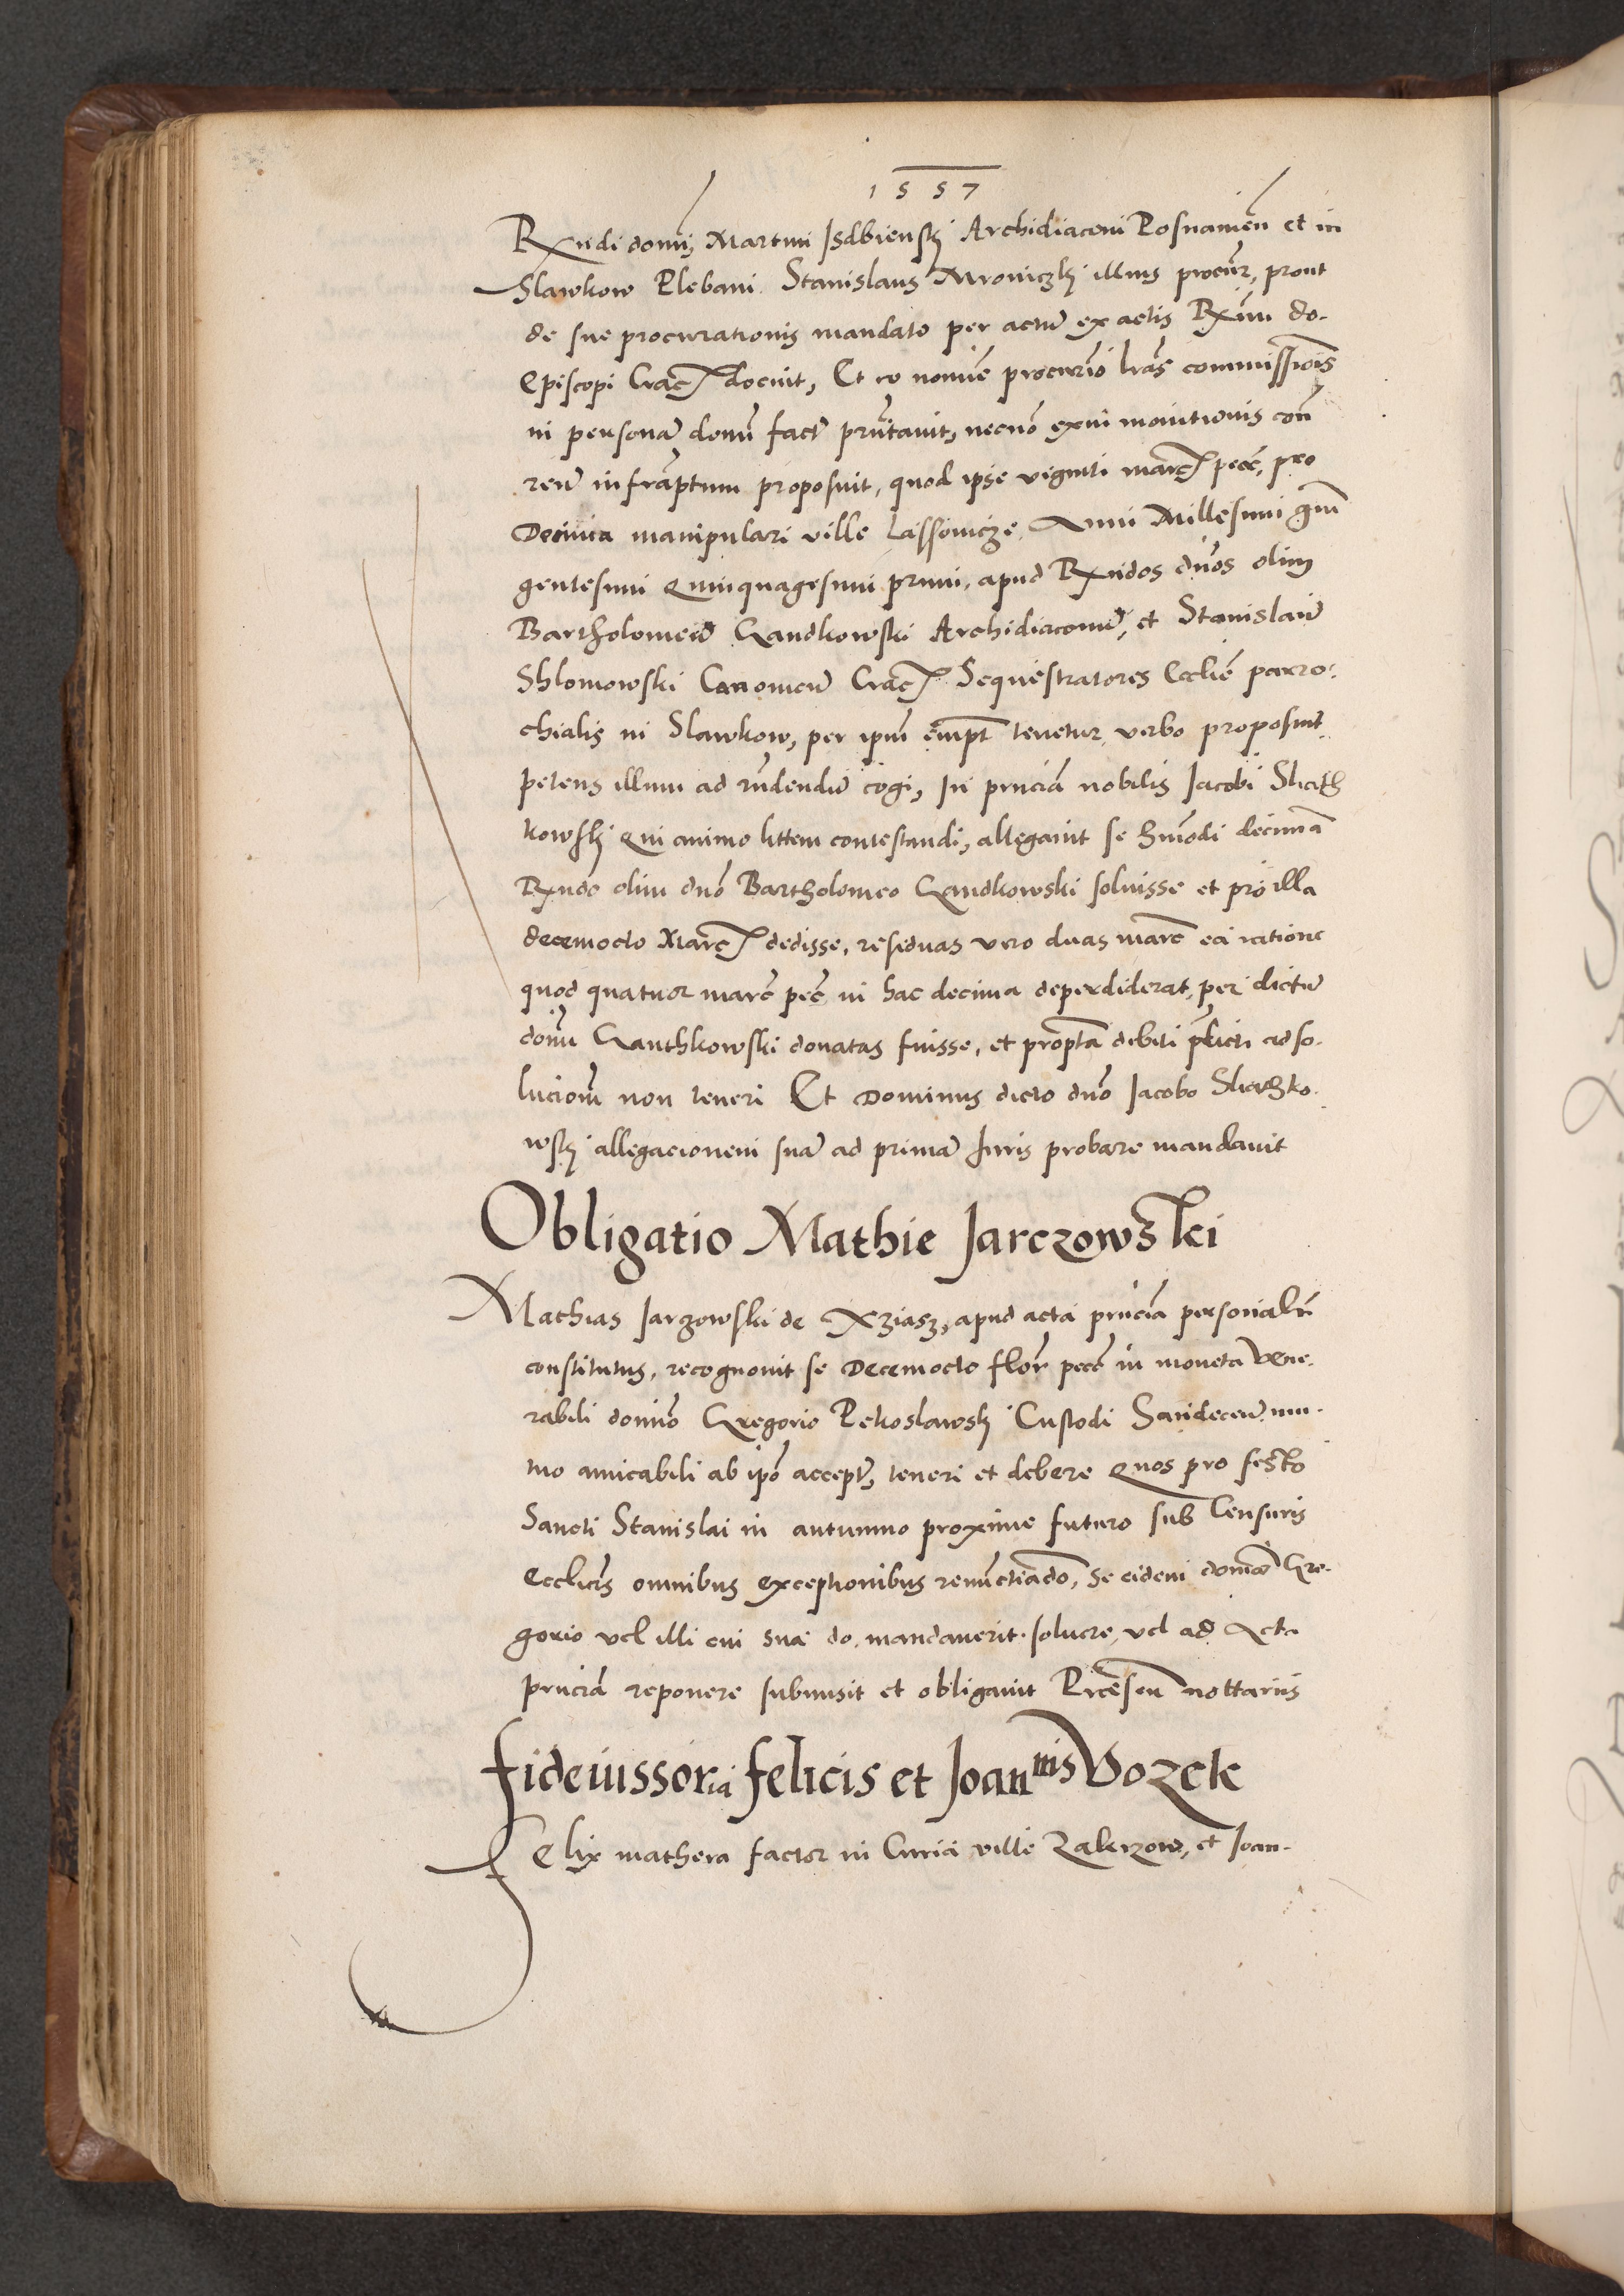 1557
Rxndi domī Martini Isdbiensky Archidiaconi Posnaniēn et in
Slawkow Plebani Stanislaus Mroniczky illius procūr, prout
de sue procurationis mandato per actū ex actis Rxīmi do.
Episcopi Crac docuit, Et eo nomīe procurīo lrās commissiōis
in personā domī factā prūtavit, necnō exni monitionis con
reū infrāptum proposuit, quod ipse viginti marc pecc, pro
Decima manipulari ville Lassoincze Anni Millesimi quī
gentesimi Quinquagesimi primi, apud Rxndos dnōs olim
Bartholomeū Gandkowski Archidiaconū, et Stanislaū
Shlomowski Canonicū Crac Sequestratores Ecclie parro-
chialis in Slawkow, per ipm̄ empt tenetur verbo proposuit
petens illum ad rn̄dendū cogi, In prnciā nobilis Jacobi Sliath
kowsky Qui animo littem contestandi, allegavit se hmōdi decimā
Rxndo olim dnō Bartholomeo Gandkowski solvisse et pro illa
decemocto Marc dedisse, residuas vero duas marc ea ratione
quod quatuor marc pec in hac decima deperdiderat, per dictū
domī Ganthkowski donatas fuisse, et proptā debiti pdicti ad so-
lucionē non teneri Et Dominus dicto dnō Jacobo Sliathko-
wsky allegacionem suā ad primā Juris probare mandavit
Obligatio Mathie Jarczowski
Mathias Jarzowski de Xziasz, apud acta prnciā personalr
constitutus, recognovit se Decemocto flor pecc in moneta Vene-
rabili domīo Gregorio Pekoslawsky Custodi Sandeceū mu-
tuo amicabili ab ipō accept, teneri et debere Quos pro festo
Sancti Stanislai in autumno proxime futuro sub Censuris
Ecclicīs omnibus exceptionibus renunctiādo, se eidem domīo Gre-
gorio vel illi cui sua do. mandaverit solvere, vel ad Acta
prnciā reponere submisit et obligavit Prcēseñ nottariis
Fideiussoria Felicis et Joannis Vozek
Felix mathera factor in Curia ville Zakrzow, et Joan-